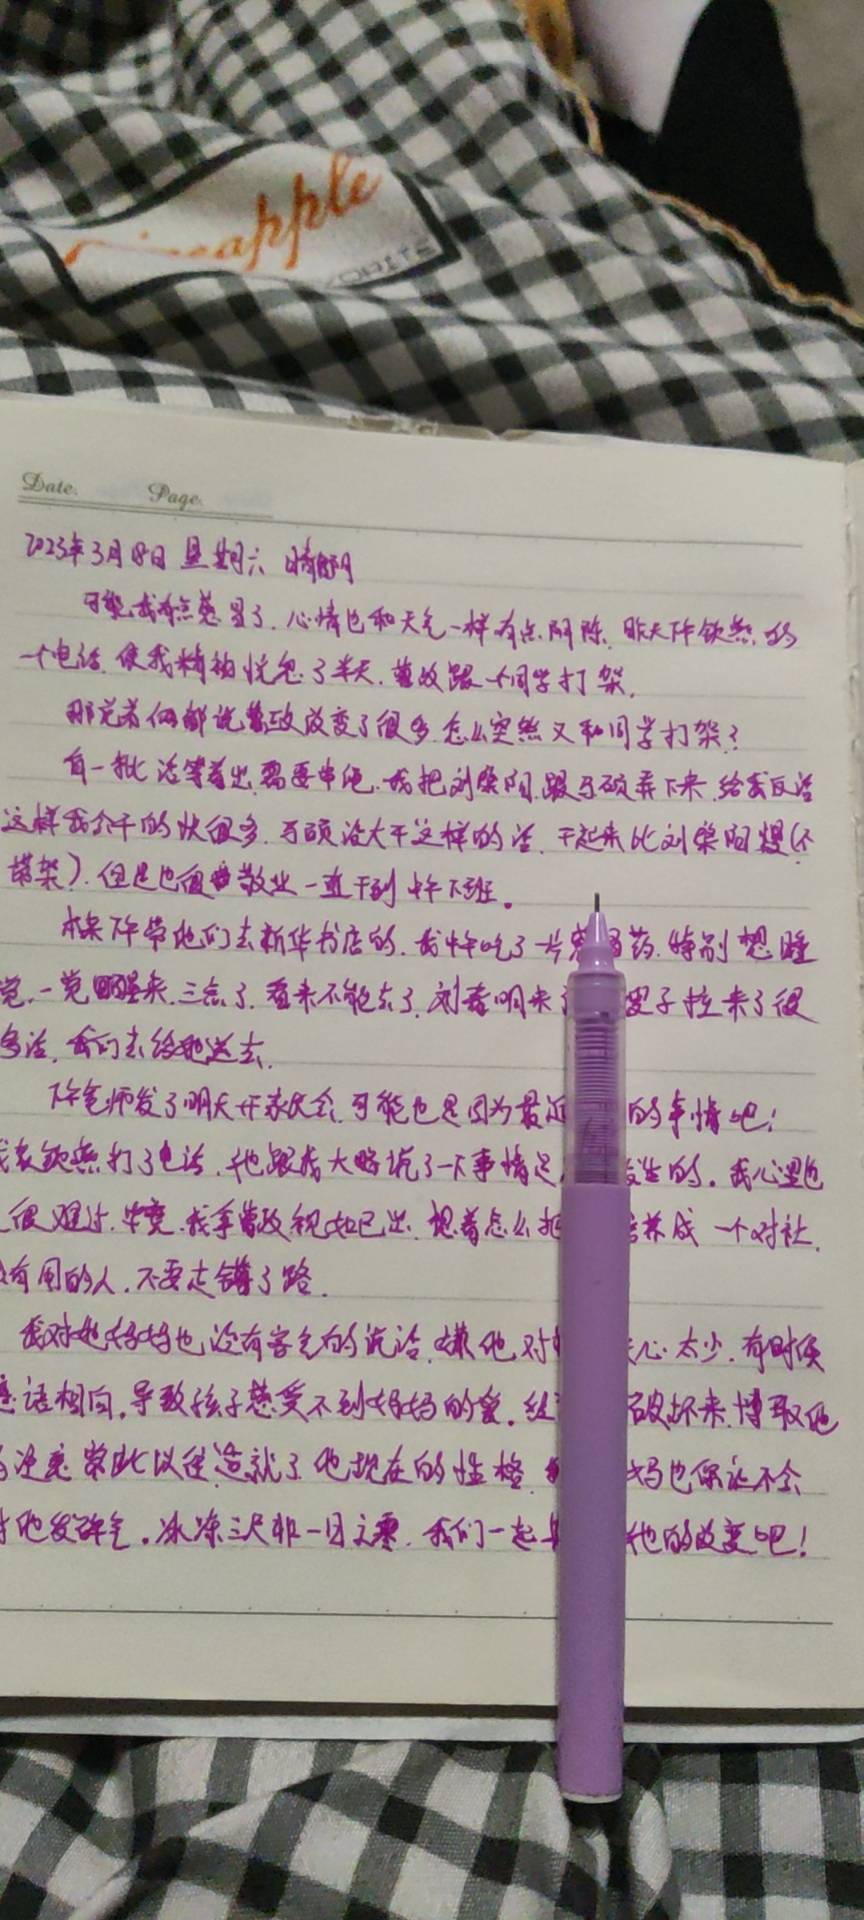 apple
Date. Page.
2023年3月18日 星期六 晴阴
可能我有点感冒了.心情也和天气一样有点阴沉.昨天下午钦然的
一个电话.使我精神恍惚了半天.曹政跟一个同学打架.
那究者俩都说曹政改变了很多.怎么突然又和同学打架?
有一批活等着出.需要串绳.我把刘荣阳.跟马硕弄下来.给我反活
这样我个干的快很多.马硕没大干这样的活.干起来比刘荣阳慢(不
带架).但是也很敬业一直干到中午下班。
本来下午带他们去新华书店的.我中午吃了一片感冒药.特别想睡
觉.一觉醒来.三点了.看来不能去了.刘春明来 嫂子拉来了很
多活,我们去给她送去.
下午老师发了明天开家长会.可能也是因为最近 的事情吧!
我给钦然打了电话.他跟我大略说了一下事情是 发生的.我心里也
很难过.毕竟.我拿曹政视如已出.想着怎么把 培养成一个对社
会有用的人.不要走错了路.
我对她妈妈也没有客气的说话.嫌他对 关心太少.有时候
恶语相向.导致孩子感受不到妈妈的爱. 破坏来.博取他
的注意.常此以往.造就了他现在的性格. 妈也保证不会
对他发脾气.冰冻三尺非一日之寒.我们一起 他的改变吧!